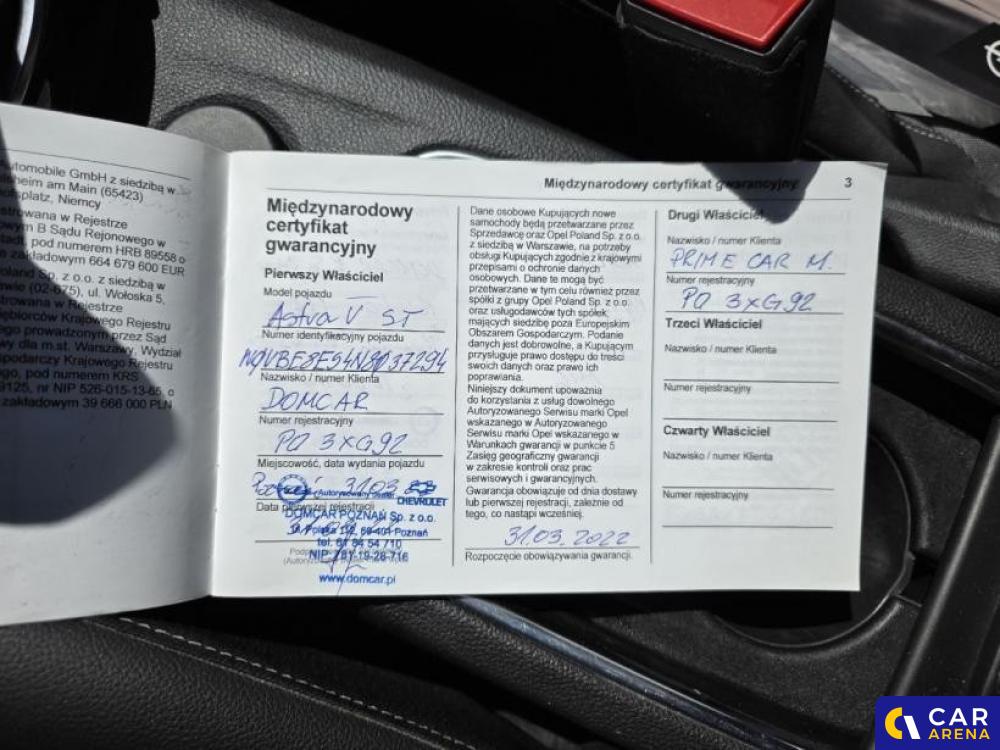 utomobile GmbH z siedzibą w
heim am Main (65423)
platz, Niemcy
strowana w Rejestrze
wym B Sądu Rejonowego w
pod numerem HRB 89558 o
zakładowym 664 679 600 EUR
oland Sp. z o.o. z siedzibą w
awie (02-675), ul. Wołoska 5,
strowana w Rejestrze
ębiorców Krajowego Rejestru
ego prowadzonym przez Sąd
wy dla m.st. Warszawy, Wydział
podarczy Krajowego Rejestru
ego, pod numerem KRS
9125, nr NIP 526-015-13-65, o
zakładowym 39 666 000 PLN
Międzynarodowy certyfikat gwarancyjny 3
Międzynarodowy
certyfikat
gwarancyjny
Pierwszy Właściciel
Model pojazdu
Astra V ST
Numer identyfikacyjny pojazdu
W0VBE8E94N8037294
Nazwisko / numer Klienta
DOMCAR
Numer rejestracyjny
PO 3XG92
Miejscowość, data wydania pojazdu
Poznań 31.03
CHEVROLET
Data pierwszej rejestracji
DOMCAR POZNAŃ Sp. z o.o.
60-401 Poznań
tel. 61 84 54 710
NIP 781-19-28-716
www.domcar.pl
Dane osobowe Kupujących nowe
samochody będą przetwarzane przez
Sprzedawcę oraz Opel Poland Sp. z o.o.
z siedzibą w Warszawie, na potrzeby
obsługi Kupujących zgodnie z krajowymi
przepisami o ochronie danych
osobowych. Dane te mogą być
przetwarzane w tym celu również przez
spółki z grupy Opel Poland Sp. z o.o.
oraz usługodawców tych spółek,
mających siedzibę poza Europejskim
Obszarem Gospodarczym. Podanie
danych jest dobrowolne, a Kupującym
przysługuje prawo dostępu do treści
swoich danych oraz prawo ich
poprawiania.
Niniejszy dokument upoważnia
do korzystania z usług dowolnego
Autoryzowanego Serwisu marki Opel
wskazanego w Autoryzowanego
Serwisu marki Opel wskazanego w
Warunkach gwarancji w punkcie 5
Zasięg geograficzny gwarancji
w zakresie kontroli oraz prac
serwisowych i gwarancyjnych.
Gwarancja obowiązuje od dnia dostawy
lub pierwszej rejestracji, zależnie od
tego, co nastąpi wcześniej.
31.03.2022
Rozpoczęcie obowiązywania gwarancji.
Drugi Właściciel
Nazwisko / numer Klienta
PRIME CAR M.
Numer rejestracyjny
PO 3XG92
Trzeci Właściciel
Nazwisko / numer Klienta
Numer rejestracyjny
Czwarty Właściciel
Nazwisko / numer Klienta
Numer rejestracyjny
CAR
ARENA